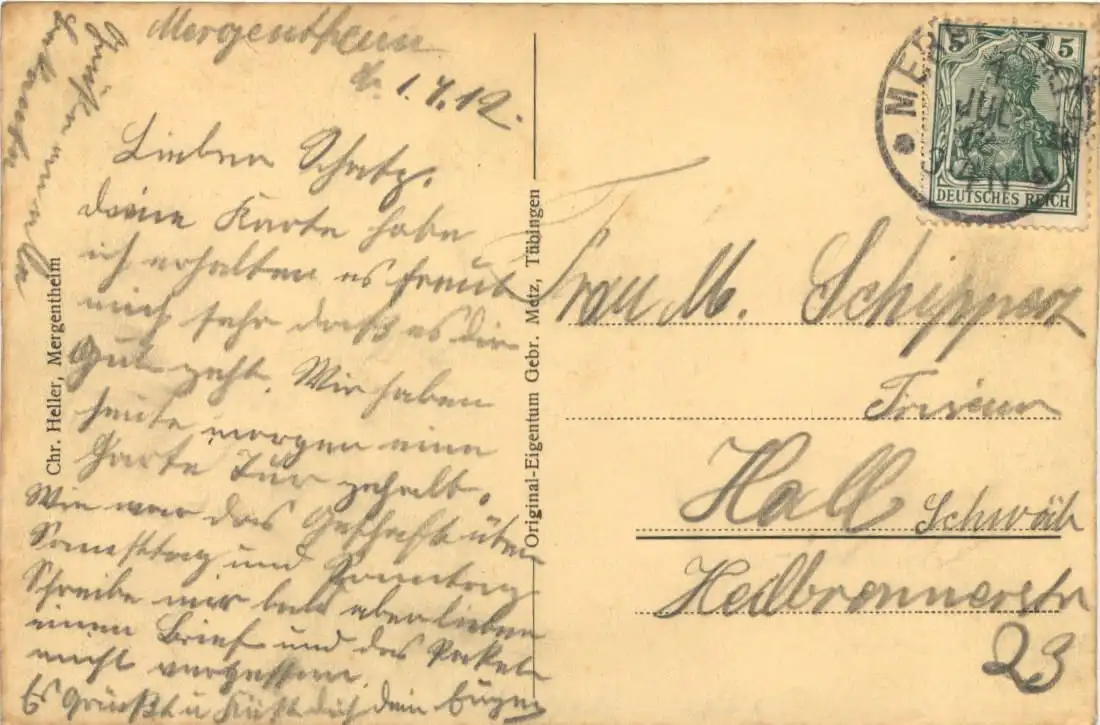 Mergentheim
d. 1.7.12.
Lieber Schatz.
Deine Karte habe
ich erhalten es freut
mich sehr daß es dir
Gut geht. Wir haben
heute morgen eine
harte Tur gehabt.
Wie war das Geschäft über
Samsttag und Sonntag
Schreibe mir bald aber lieber
einen Brief und das Paket
nicht vergessen.
Es Grüßt u Küßt dich dein Eugen
Chr. Heller, Mergentheim
Original-Eigentum Gebr. Metz, Tübingen
5 5
DEUTSCHES REICH
JUL
12
Frau M. Schipperz
Friseur
Hall Schwäb
Heilbronnerstr
23